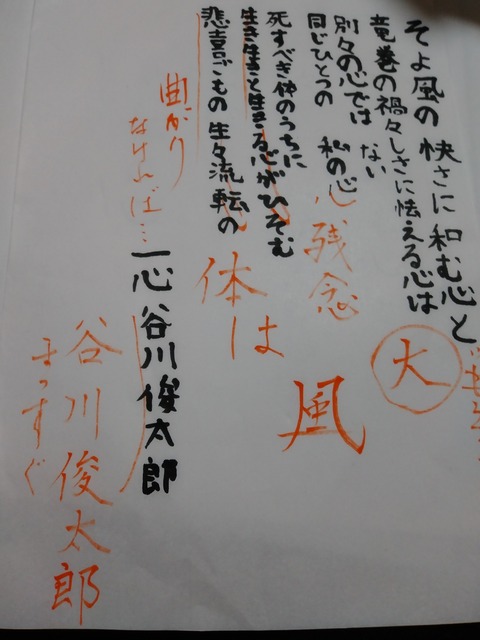 そよ風の 快さに 和む心と
竜巻の禍々しさに怯える心は
別々の心では ない
同じひとつの 私の心
死すべき体のうちに
生き生きと生きる心がひそむ
悲喜こもの 生々流転の
一心 谷川俊太郎
大
心
残念
風
体は
曲がり
なければ…
谷川俊太郎
まっすぐ